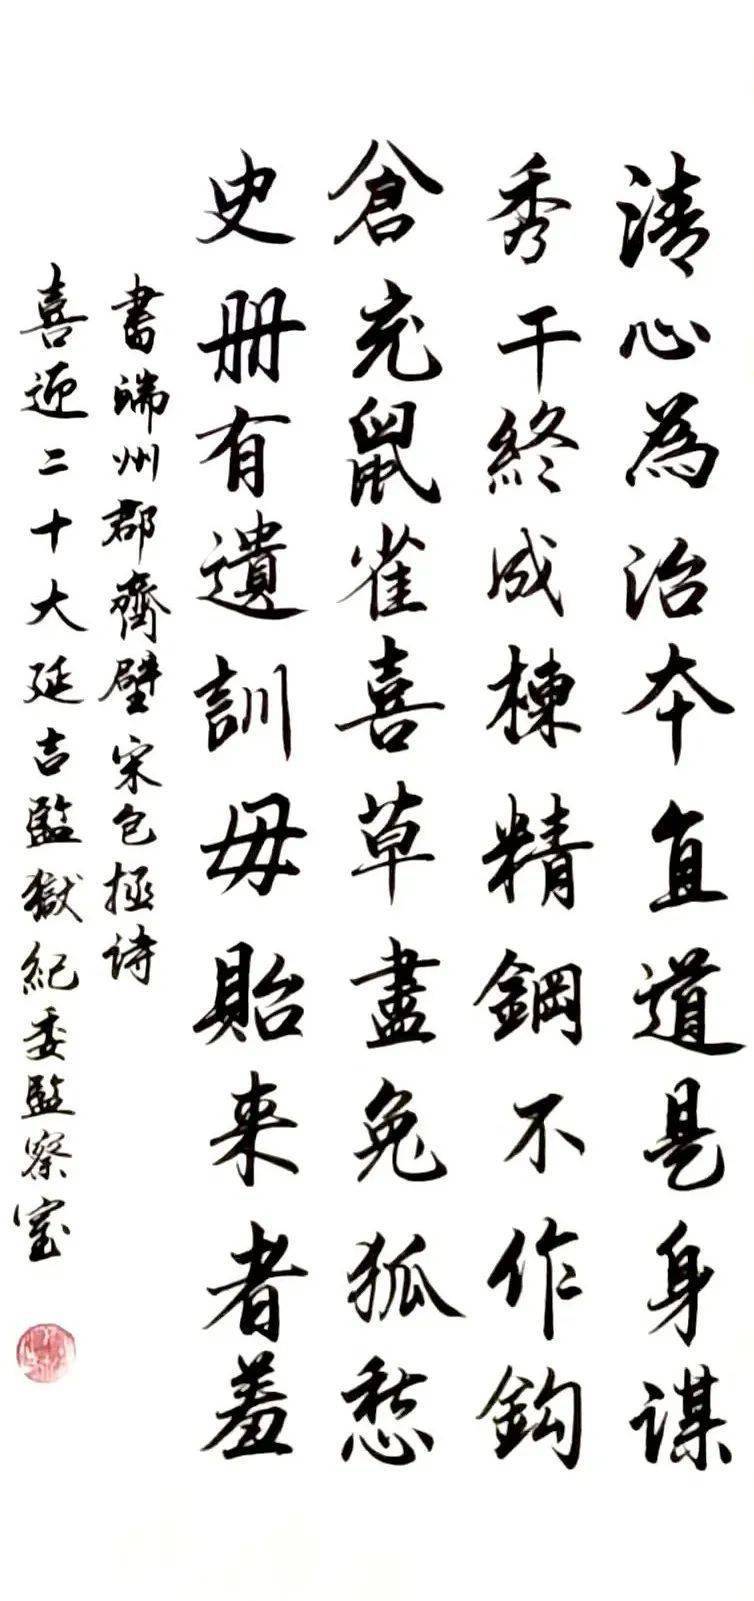 清心為治本直道是身謀
秀干終成棟精鋼不作鈎
倉充鼠雀喜草盡兔狐愁
史册有遺訓毋貽来者羞
書端州郡齊壁宋包拯诗
喜迎二十大延吉監獄紀委監察室